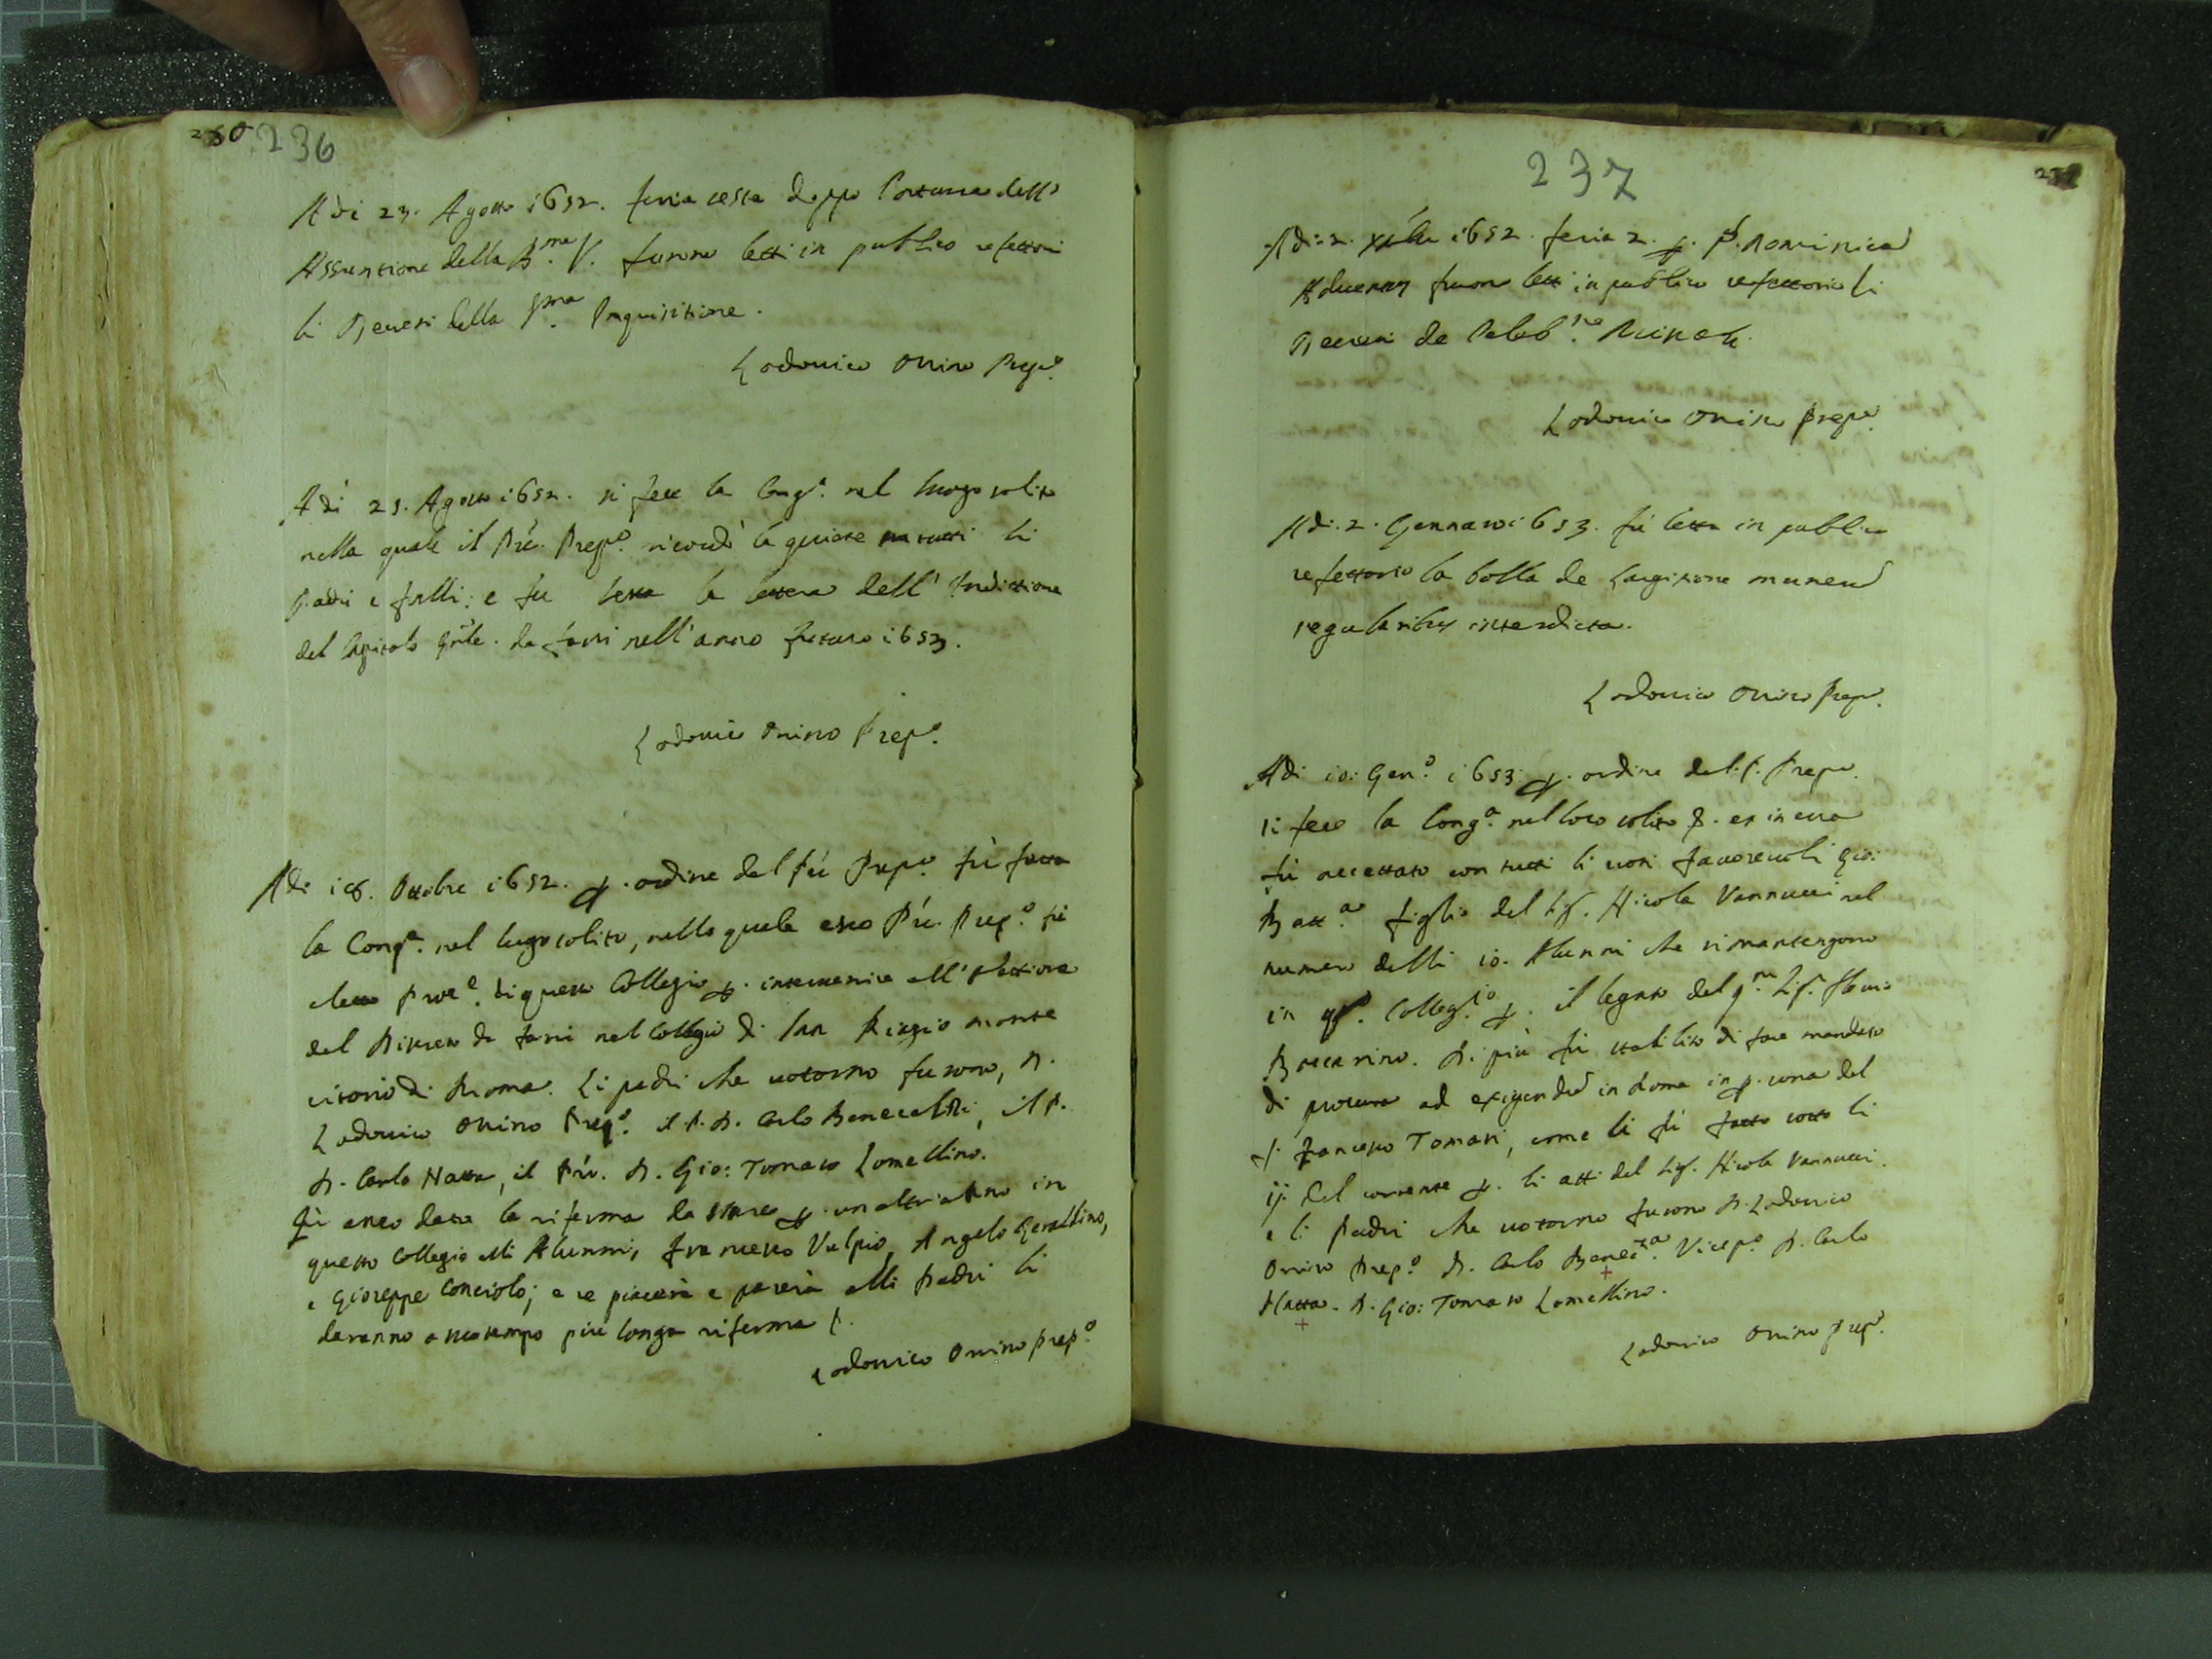 236
Adi 23. Agosto 1652. feria sesta doppo l'ottava dell'
Assuntione della B.ma V. furono letti in publico refettori
li Decreti della S.ma Inquisitione.
Lodovico Onino Prep.o
Adi 25. Agosto 1652. si fece la Cong.e nel luogo solito
nella quale il P're. Prep.o ricordò la quiete tutti li
padri e f'relli: e fu letta la lettera dell' Indittione
del Capitolo G'nle. da farsi nell'anno futuro 1653.
Lodovico Onino Prep.o
Adi 18. Ottobre 1652. p. ordine del P're Prep.o fù fatta
la Cong.e nel lugo solito, nella quale esso P're. Prep.o fù
eletto Proc.e di questo Collegio p. intervenire all'Elettione
del Discreto da farsi nel Collegio di San Biagio Monte
citorio di Roma. Li padri che votorno furono, D.
Lodovico Onino Prep.o il P. D. Carlo il P.
D. Carlo Natta, il P're. D. Gio: Tomaso Lomellino.
Fù anco data la riferma da stare p. un altr'anno in
questo Collegio alli Alunni, Francesco Vulpio, Angelo Geraldino,
e Gioseppe Conciolo; e se piacerà e parerà alli Padri li
daranno a suo tempo più longa riferma
Lodovico Onino Prep.o
237
Adi 2. Xbre 1652. feria 2. p. p. Dominica
Adventus furono letti in publico refettorio li
Decreti de Celeb.ne Missar.
Lodovico Onino Prep.o
Adi. 2. Gennaro 1653. fù letta in publico
refettorio la bolla de Largitione munerum
regularibus interdicta.
Lodovico Onino Prep.o
Adi 10: Gen.o 1653: p. ordine del. P. Prep.o
si fece la Cong.e nel loco solito et in essa
fù accettato con tutti li voti favorevoli Gio:
Batt.a figlio del Sig. Nicola Vannucci nel
numero delli 10. Alunni che si mantengono
in q'sto. Colleg.io p. il legato del q.m Sig.
Boccarino. Di più fù stabilito di fare mandato
di procura ad exigendum in Roma in p.sona del
P. Francesco Tomasi, come si fù fatto sotto li
ij. del corrente p. li atti del Sig. Nicola Vannucci.
e li Padri che votorno furono D. Lodovico
Onino Prep.o D. Carlo Vicep.o D. Carlo
Natta. D. Gio: Tomaso Lomellino.
Lodovico Onino Prep.o